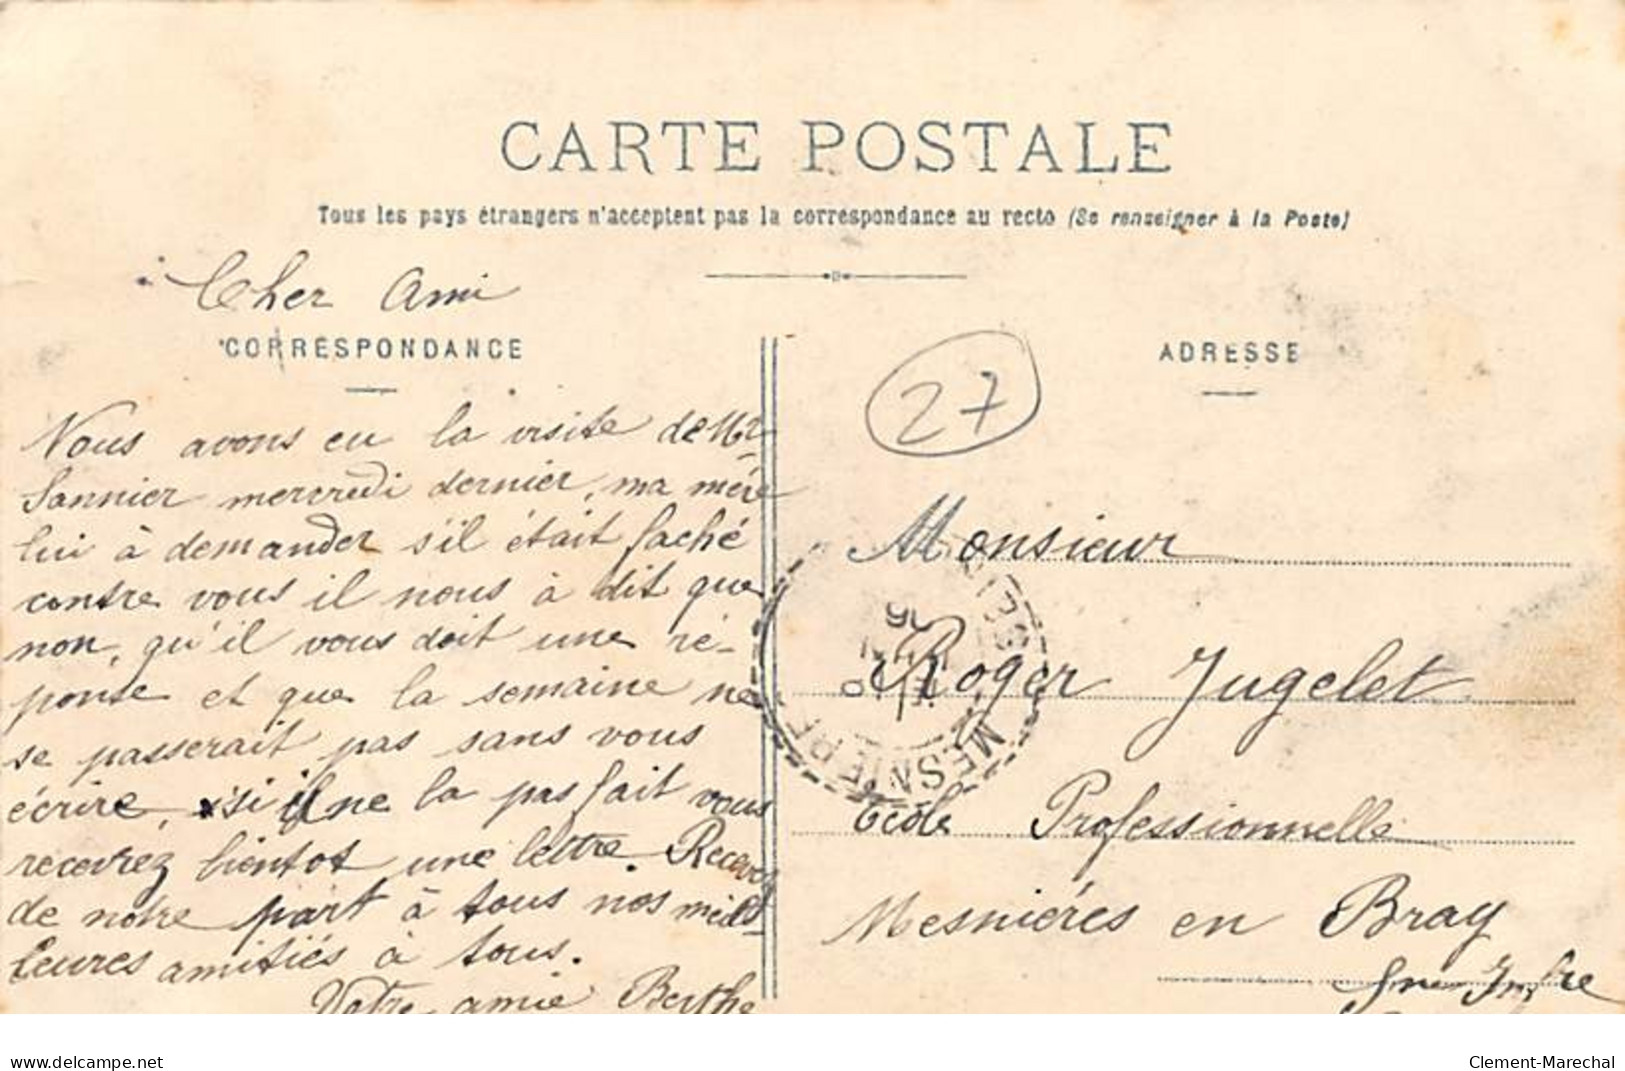 CARTE POSTALE
Tous les pays étrangers n'acceptent pas la correspondance au recto (Se renseigner à la Poste)
Cher Ami
CORRESPONDANCE
Nous avons eu la visite de Mr
Sannier mercredi dernier, ma mère
lui à demander s'il était faché
contre vous il nous à dit que
non, qu'il vous doit une ré-
ponse et que la semaine ne
se passerait pas sans vous
écrire, si il ne la pas fait vous
recevrez bientot une lettre. Recevez
de notre part à tous nos meil-
leures amitiés à tous.
Votre amie Berthe
27
ADRESSE
Monsieur
Roger Jugelet
École Professionnelle
Mesnières en Bray
Sne Infre
MESNIERE
delcampe.net
Clement-Marechal